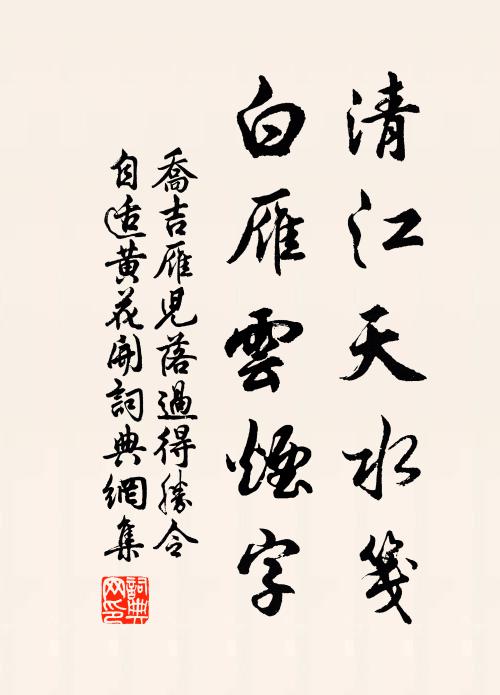 清江天水箋
白雁雲煙字
喬吉雁兒落過得勝令
自适黄花開詞典網集
詞典網印